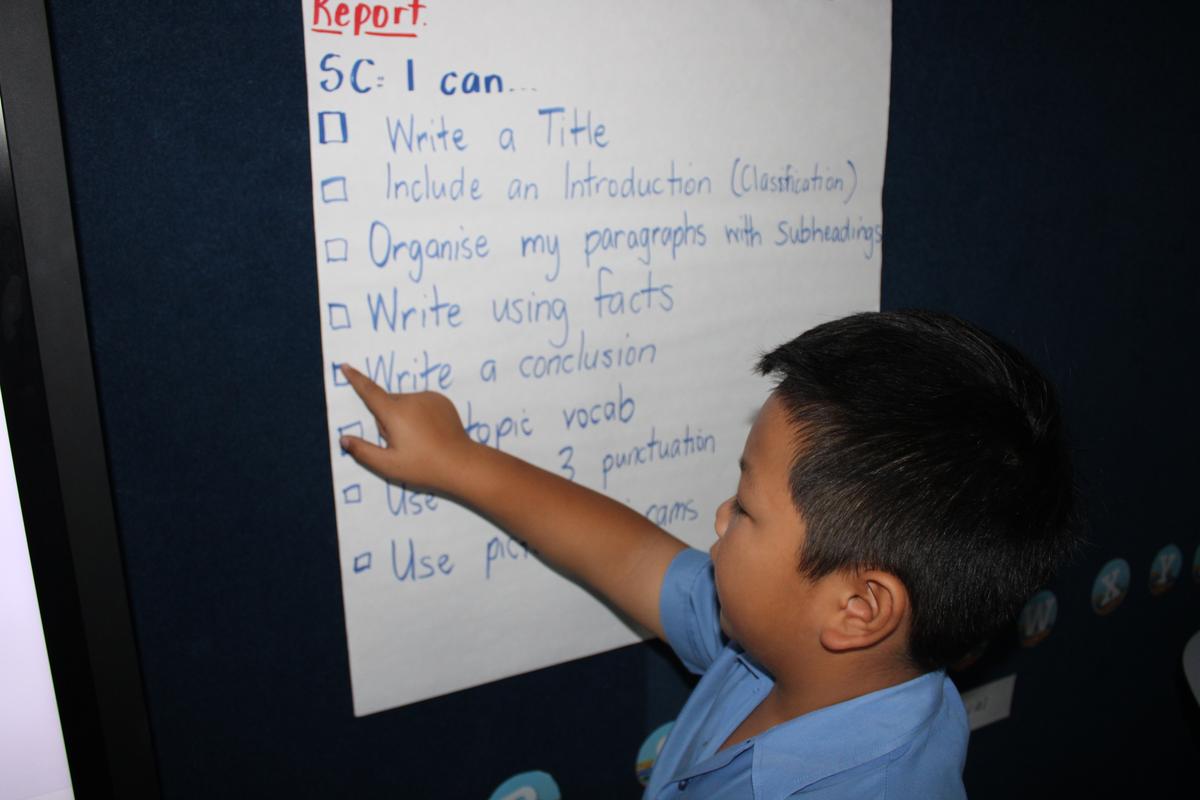 Report.
SC: I can...
Write a Title
Include an Introduction (Classification)
Organise my paragraphs with subheadings
Write using facts
Write a conclusion
topic vocab
Use 3 punctuation
Use
W
X
Y